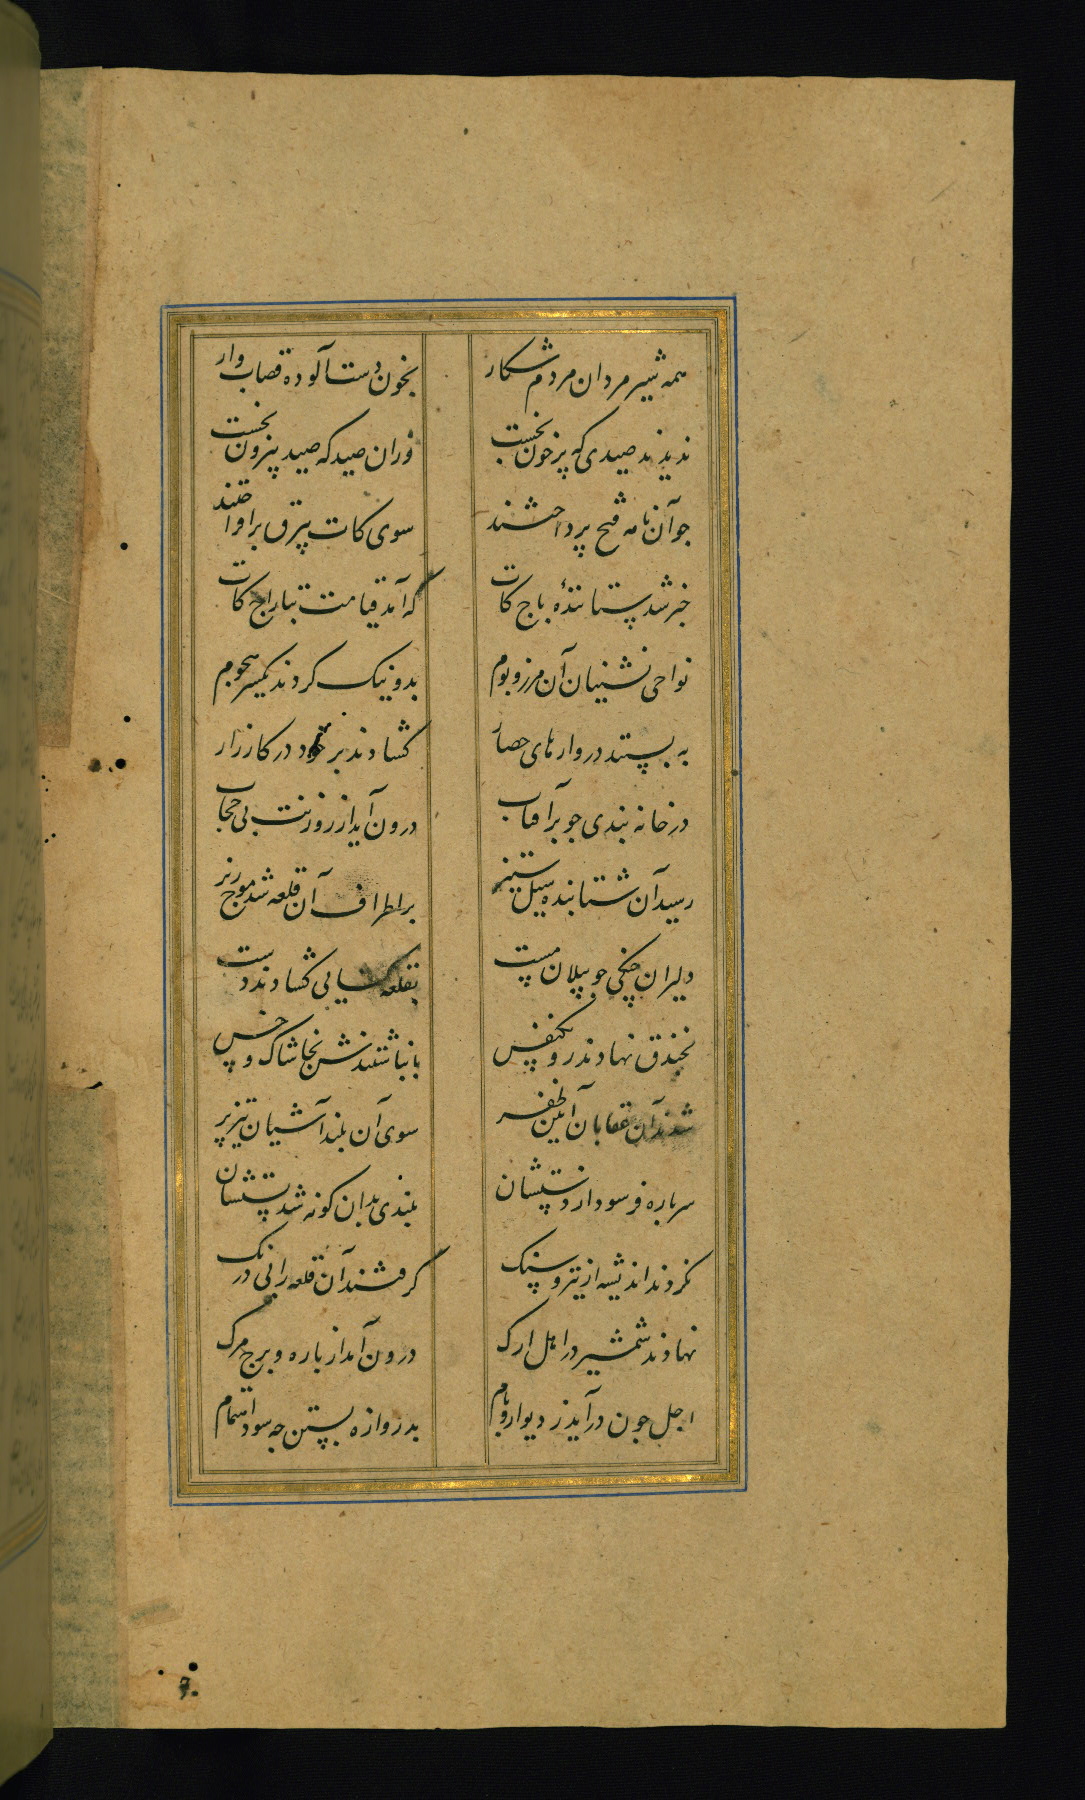 همه شیر مردان مردم شکار بخون دست آلوده قصاب وار
ندیدند صیدی که پر خون نخست وزان صید که صید بیرون نجست
جو آن نامه فتح پرداختند سوی کات بیرق برافراختند
خبر شد ستانندهٔ باج کات که آمد قیامت بتاراج کات
نواحی نشینان آن مرز و بوم بدو نیک کردند یکسر هجوم
به بستند دروازهای حصار کشادند بر خود در کارزار
در خانه بندی جو بر آفتاب درون آید از روزنت بی حجاب
رسید آن شتابنده سیل ستیز بر اطراف آن قلعه شد موج ریز
دلیران جنکی جو پیلان مست بقلعه کشایی کشادند دست
بخندق نهادند رو یکنفس بانباشتندش بخاشاک و خس
شدند آن عقابان آیین ظفر سوی آن بلند آشیان تیز پر
سر باره فرسود از دستشان بلندی بدان کونه شد پستشان
نکردند اندیشه از تیر و سنک کرفتند آن قلعه را بی درنک
نهادند شمشیر در اهل ارک درون آمد از باره و برج مرک
اجل جون درآید ز دیوار و بام بدروازه بستن جه سود اهتمام